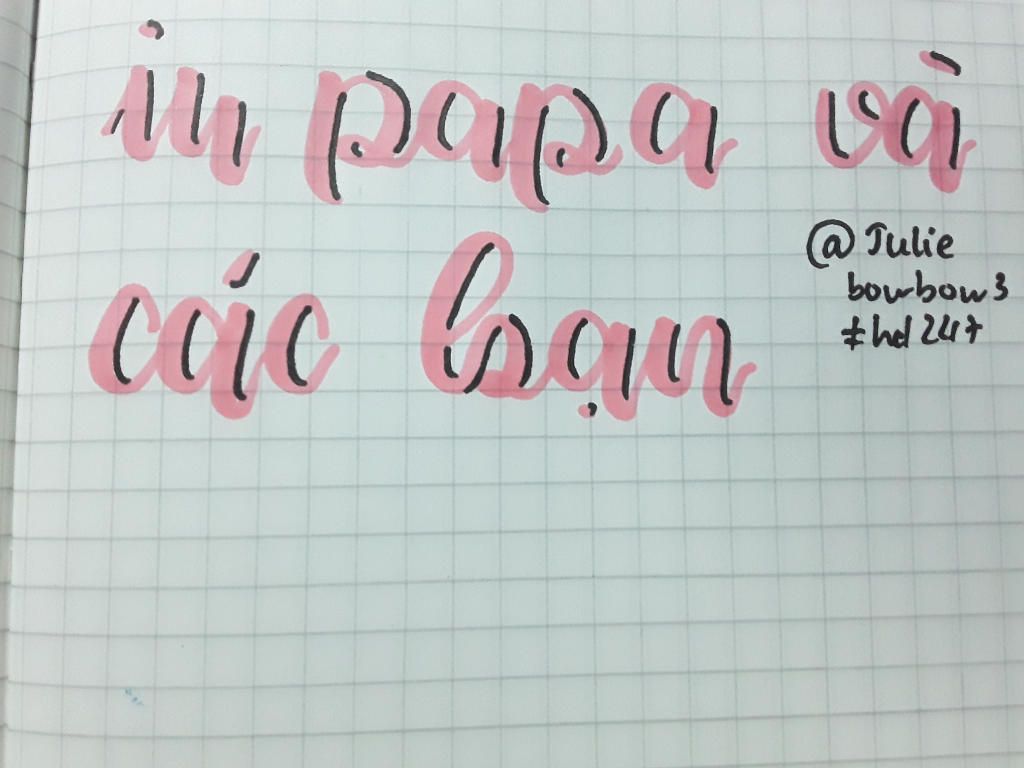 in papa và
các bạn
@Julie
bowbow3
#hd247